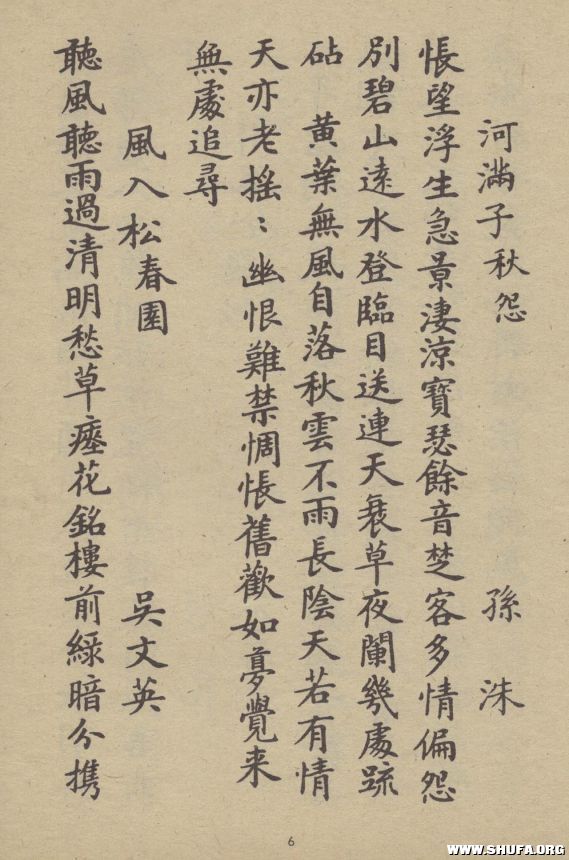 河滿子秋怨　孫洙
悵望浮生急景淒涼寶瑟餘音楚客多情偏怨
別碧山遠水登臨目送連天衰草夜闌幾處疏
砧　黃葉無風自落秋雲不雨長陰天若有情
天亦老搖〻幽恨難禁惆悵舊歡如夢覺来
無處追尋
風入松春園　吳文英
聽風聽雨過清明愁草瘞花銘樓前綠暗分携
6
WWW.SHUFA.ORG